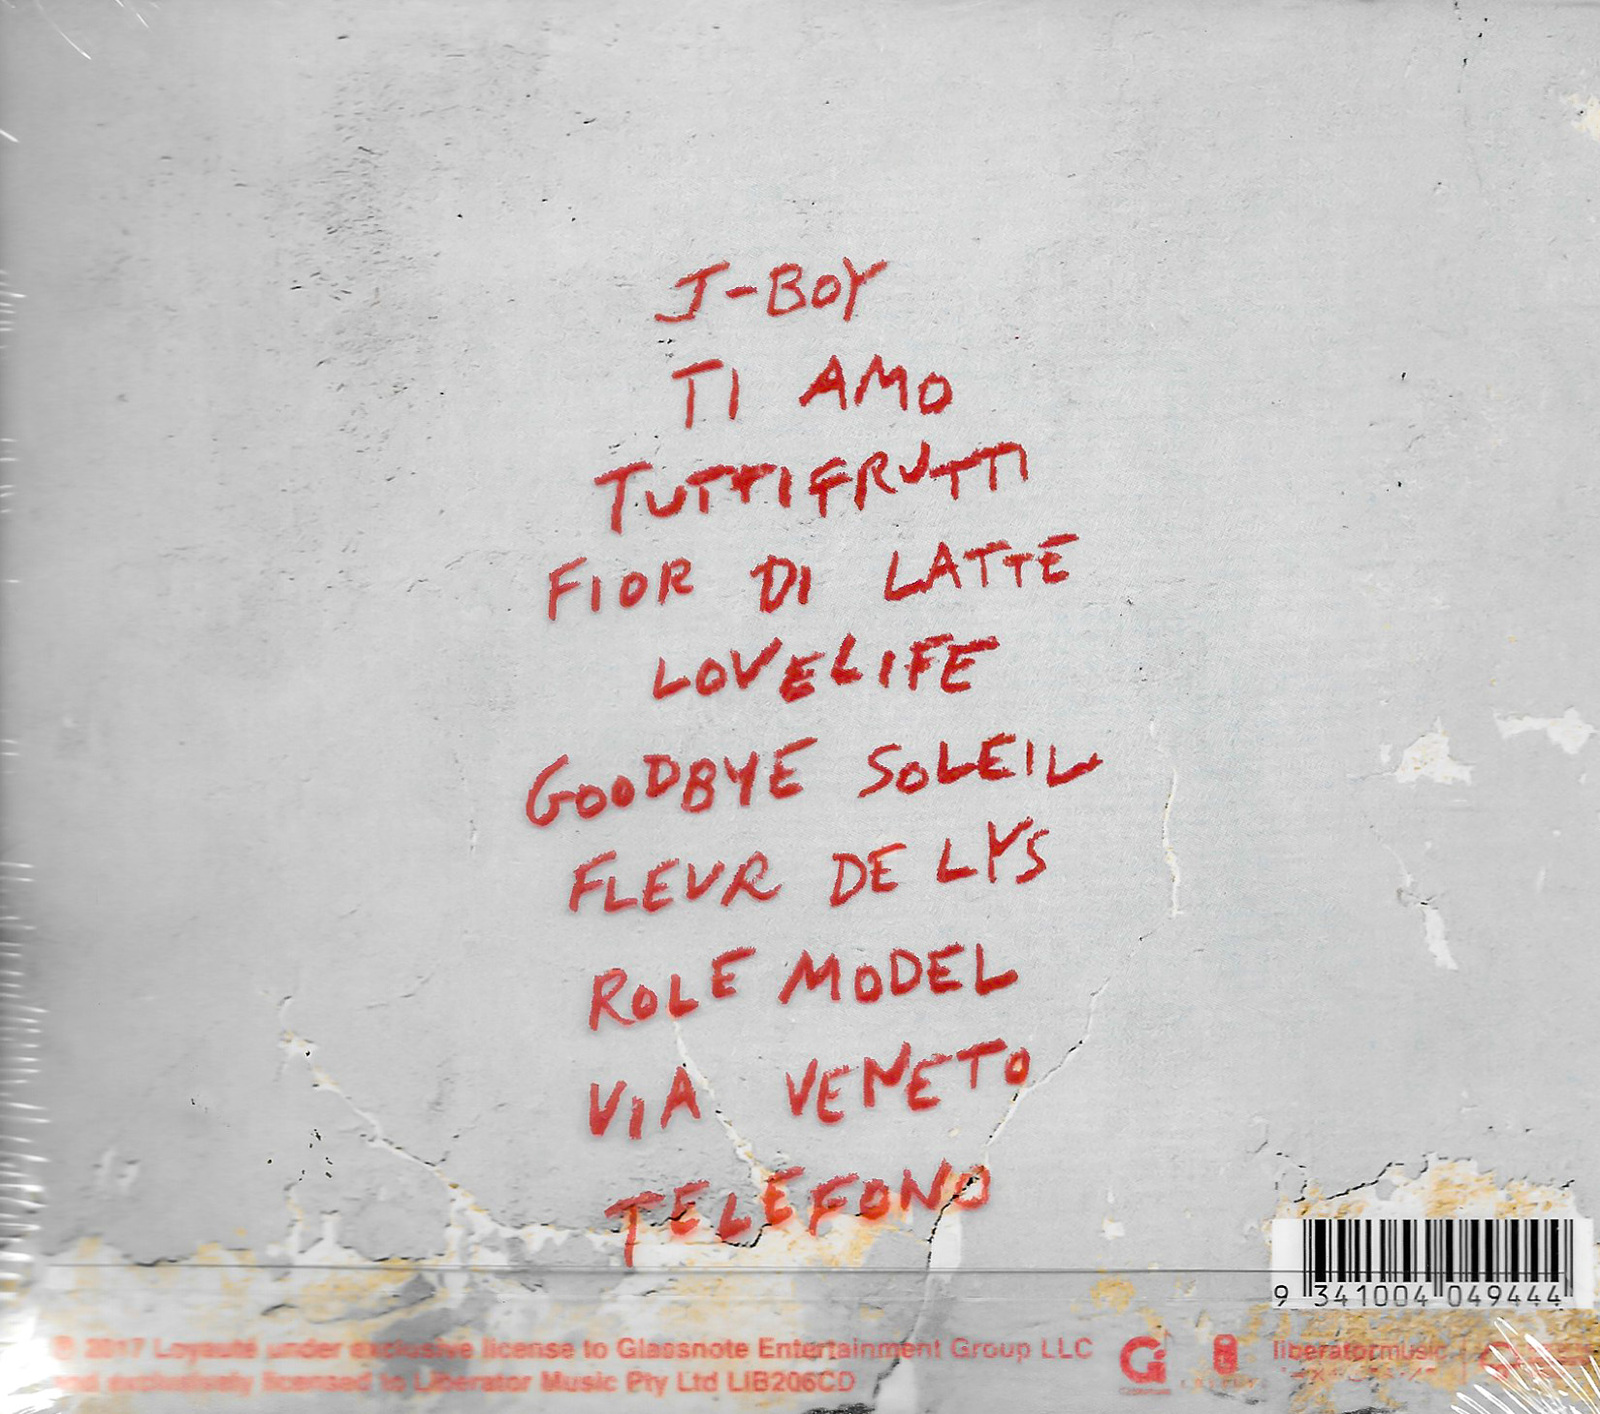 J-BOY
TI AMO
TUTTIFRUTTI
FIOR DI LATTE
LOVELIFE
GOODBYE SOLEIL
FLEUR DE LYS
ROLE MODEL
VIA VENETO
TELEFONO
9 341004 049444
℗ 2017 Loyauté under exclusive license to Glassnote Entertainment Group LLC
and exclusively licensed to Liberator Music Pty Ltd LIB206CD
liberatormusic